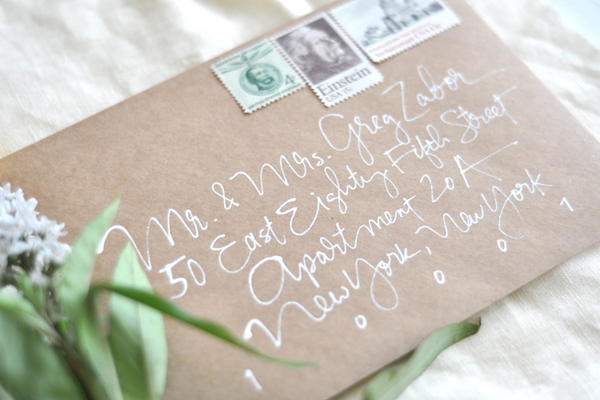 4
Einstein
Mr. & Mrs. Greg Zabor
50 East Eighty Fifth Street
Apartment 20A
New York, New York
1 0 0 0 1